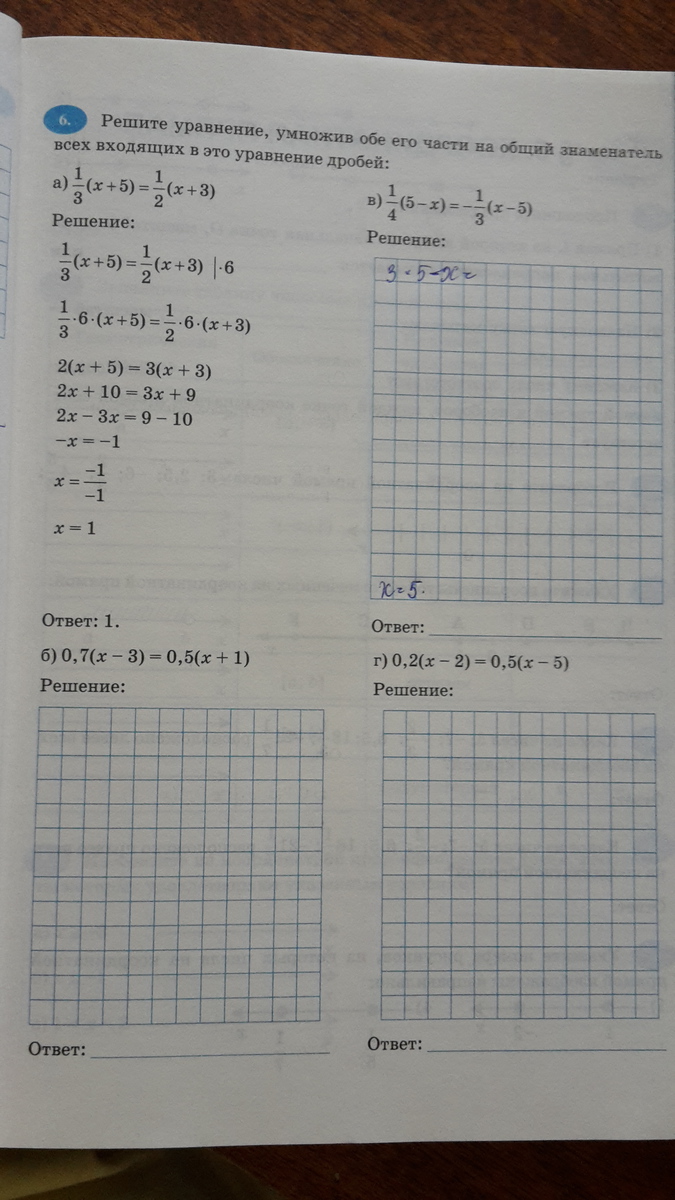 6. Решите уравнение, умножив обе его части на общий знаменатель
всех входящих в это уравнение дробей:
а) 1/3 (x + 5) = 1/2 (x + 3)
Решение:
1/3 (x + 5) = 1/2 (x + 3) | · 6
1/3 · 6 · (x + 5) = 1/2 · 6 · (x + 3)
2(x + 5) = 3(x + 3)
2x + 10 = 3x + 9
2x − 3x = 9 − 10
−x = −1
x = −1/−1
x = 1
Ответ: 1.
в) 1/4 (5 − x) = −1/3 (x − 5)
Решение:
3 · 5 − x =
x = 5.
Ответ:
б) 0,7(x − 3) = 0,5(x + 1)
Решение:
Ответ:
г) 0,2(x − 2) = 0,5(x − 5)
Решение:
Ответ: